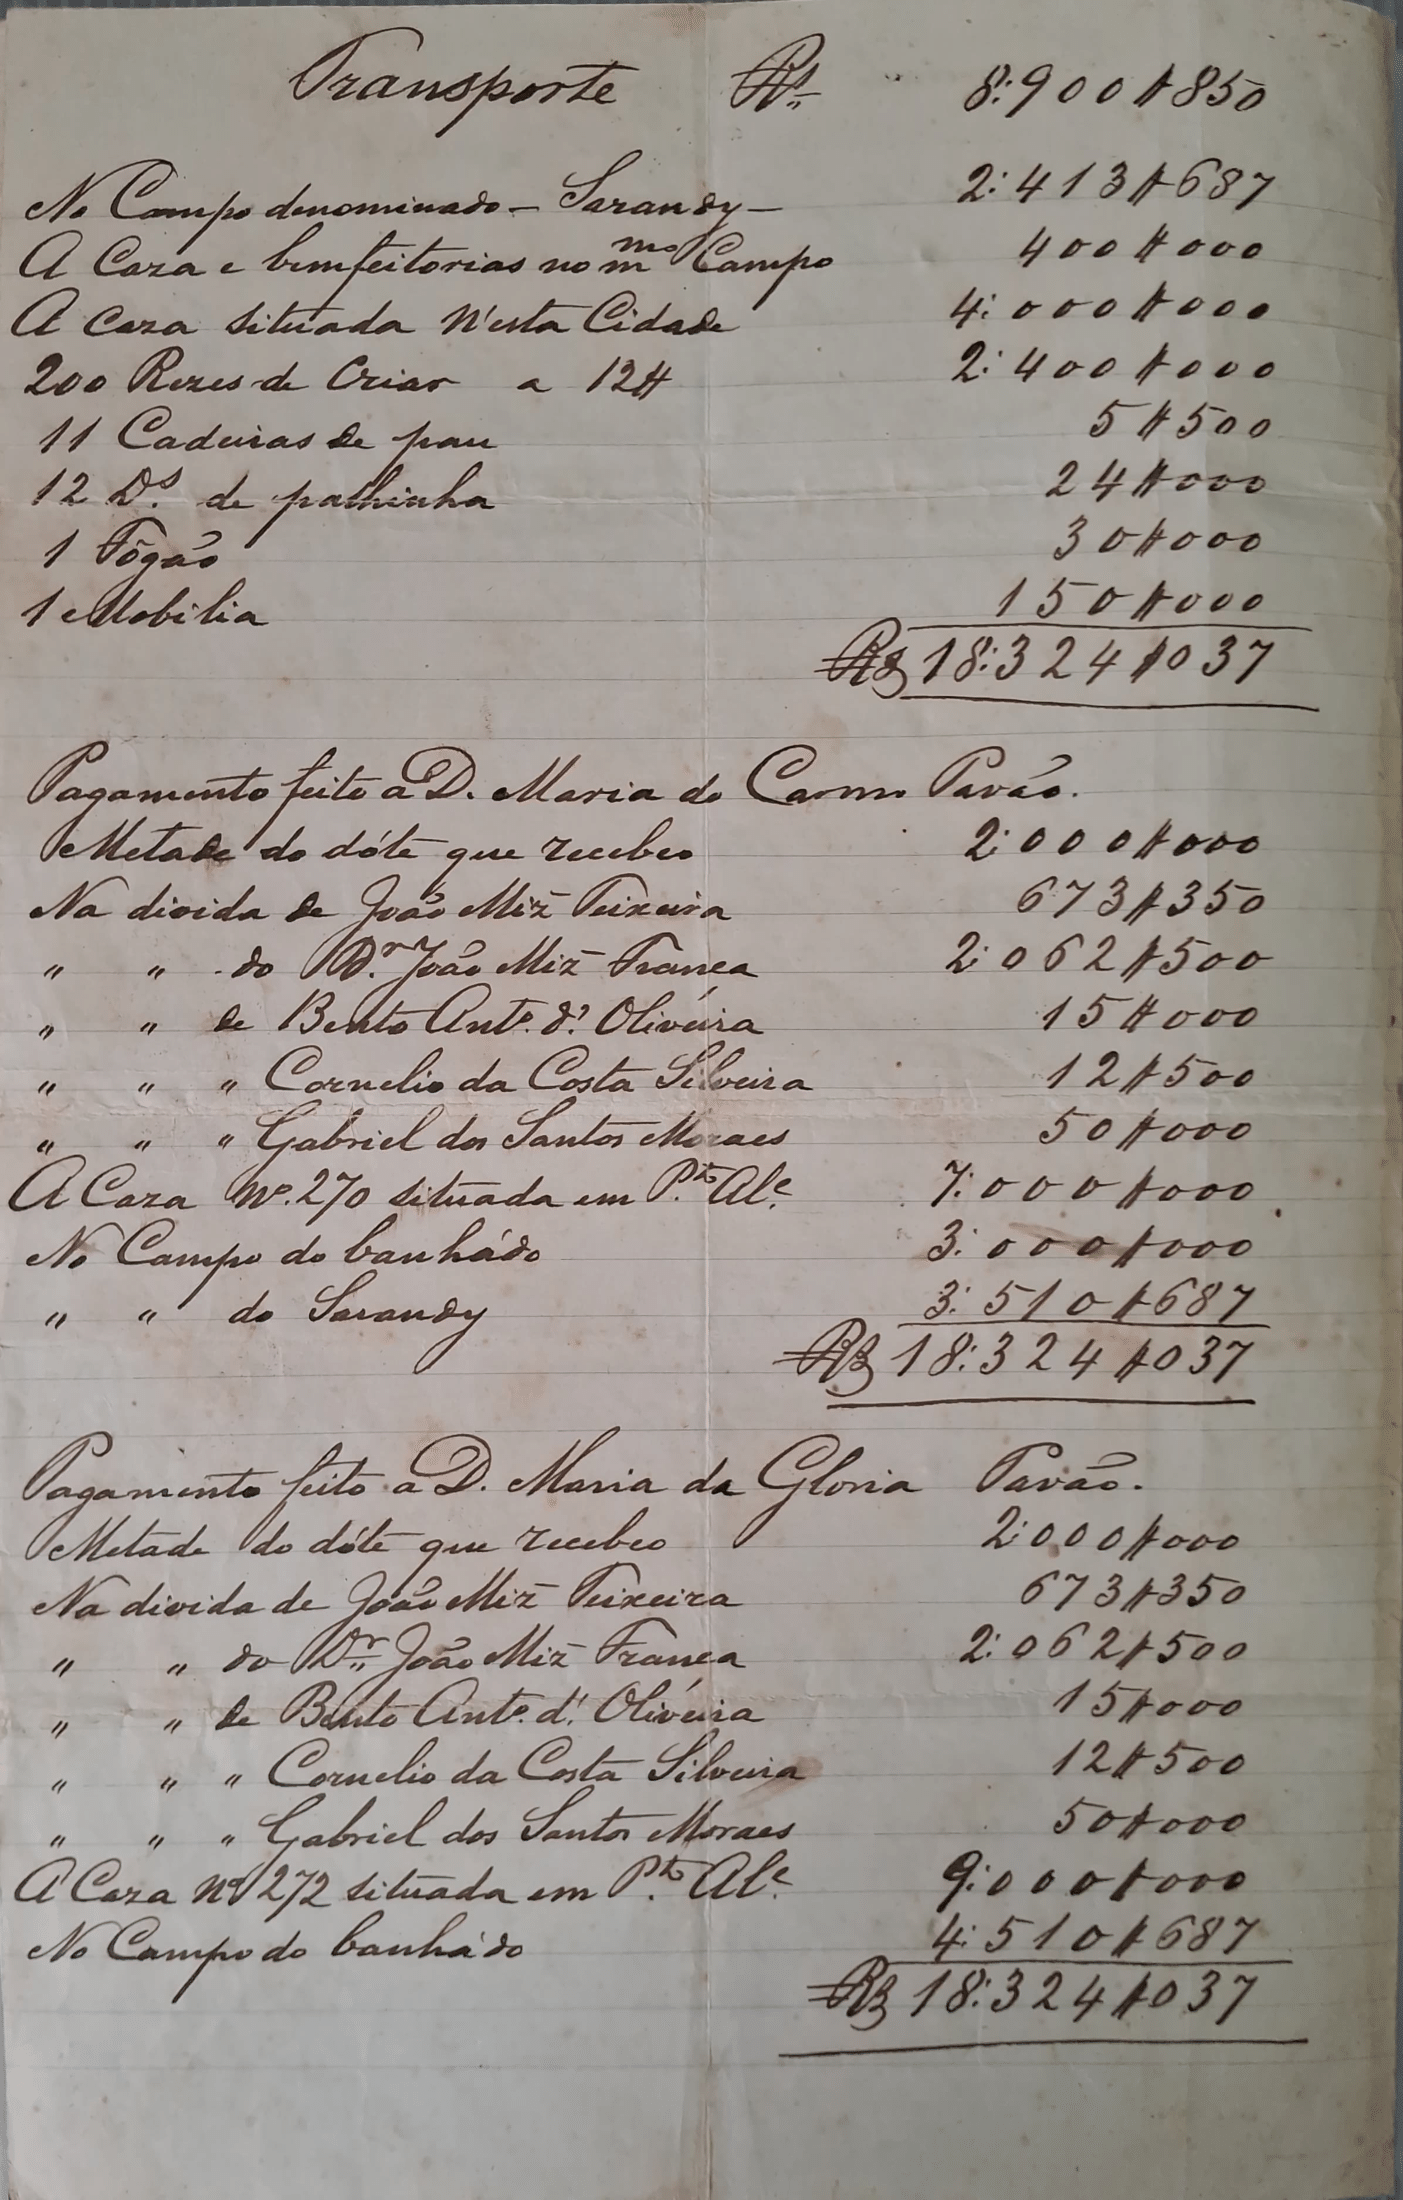 Transporte Rs. 8:900$850
No Campo denominado - Sarandy - 2:413$687
A Caza e bemfeitorias no mmo Campo 400$000
A Caza situada N'esta Cidade 4:000$000
200 Rezes de Criar a 12$ 2:400$000
11 Cadeiras de pau 5$500
12 Ds. de palhinha 24$000
1 Fôgão 30$000
1 Mobilia 150$000
Rs 18:324$037
Pagamento feito a D. Maria do Carmo Pavão.
Metade do dóte que recebeo 2:000$000
Na divida de João Miz̃ Teixeira 673$350
" " do Dr. João Miz̃ França 2:062$500
" " de Bento Anto. d'. Oliveira 15$000
" " " Cornelio da Costa Silveira 12$500
" " " Gabriel dos Santos Moraes 50$000
A Caza No. 270 situada em Pto. Ale. 7:000$000
No Campo do banhádo 3:000$000
" " do Sarandy 3:510$687
Rs 18:324$037
Pagamento feito a D. Maria da Gloria Pavão.
Metade do dóte que recebeo 2:000$000
Na divida de João Miz̃ Teixeira 673$350
" " do Dr. João Miz̃ França 2:062$500
" " de Bento Anto. d'. Oliveira 15$000
" " " Cornelio da Costa Silveira 12$500
" " " Gabriel dos Santos Moraes 50$000
A Caza No 272 situada em Pto. Ale. 9:000$000
No Campo do banhádo 4:510$687
Rs 18:324$037